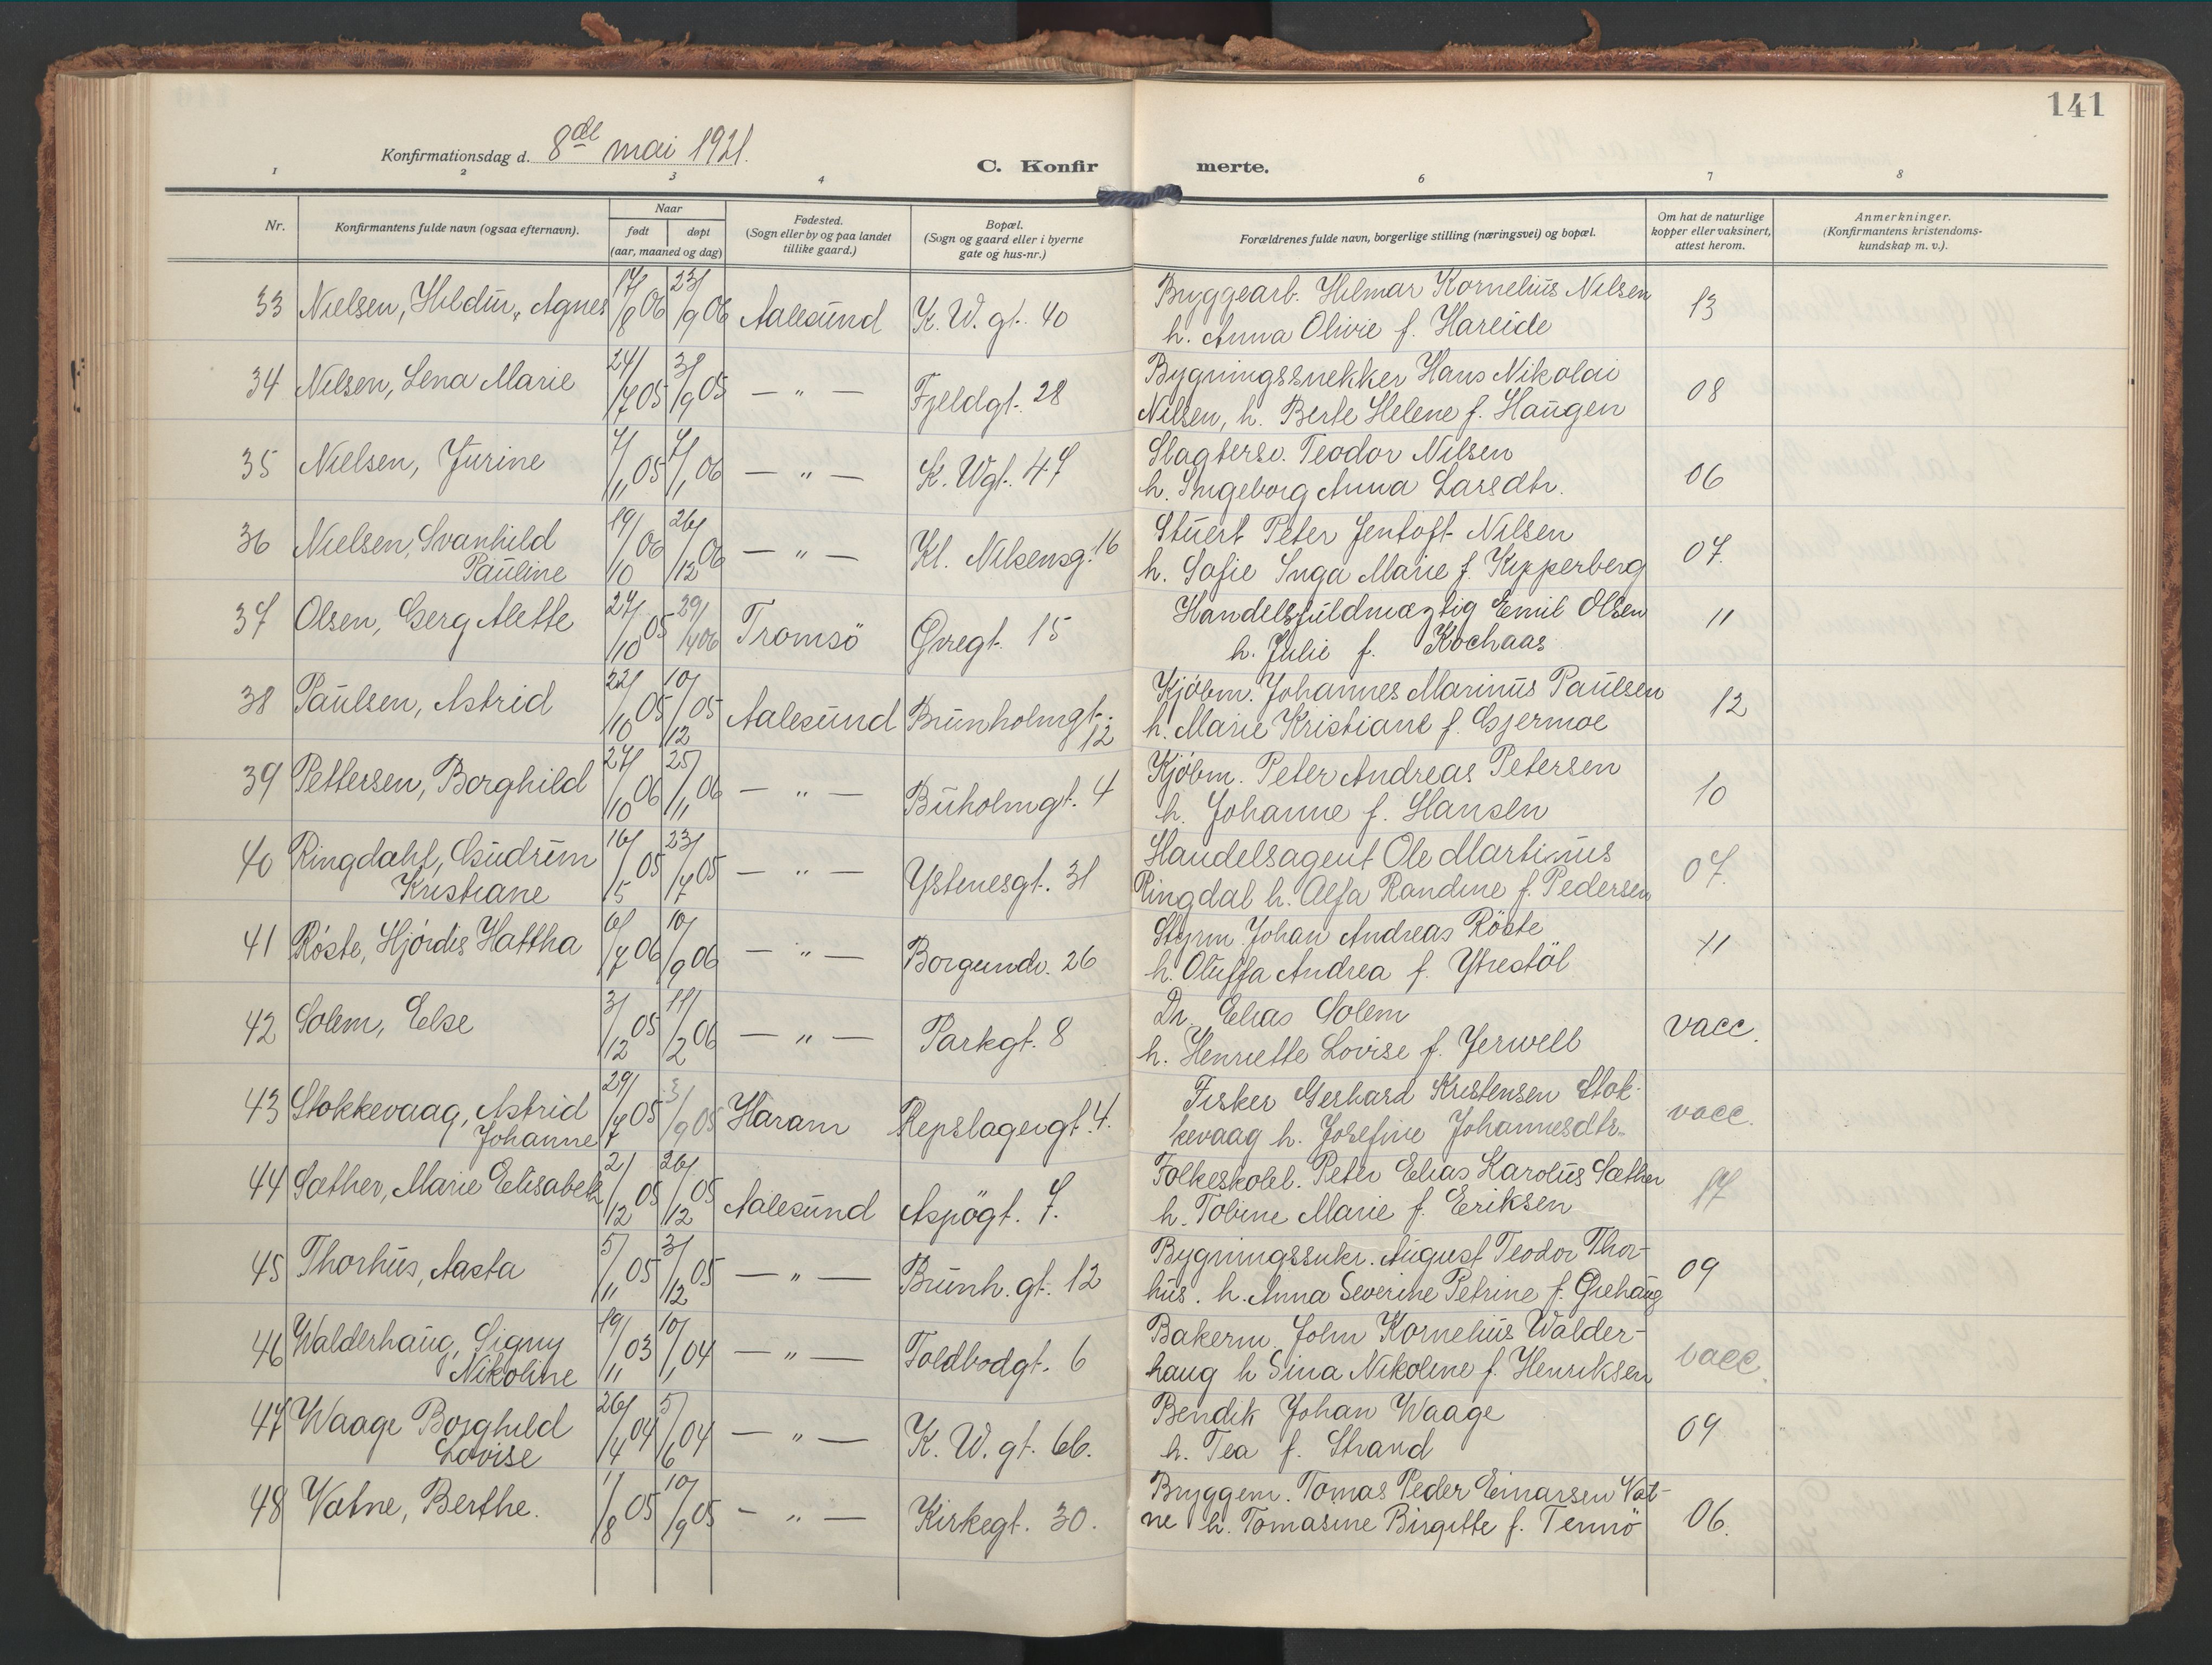 141
Konfirmationsdag d. 8de mai 1921.
C. Konfir merte.
1 2 3 4 6 7 8
Nr.
Konfirmantens fulde navn (ogsaa efternavn).
Naar
født døpt
(aar, maaned og dag)
Fødested.
(Sogn eller by og paa landet
tillike gaard.)
Bopæl.
(Sogn og gaard eller i byerne
gate og hus-nr.)
Forældrenes fulde navn, borgerlige stilling (næringsvei) og bopæl.
Om hat de naturlige
kopper eller vaksinert,
attest herom.
Anmerkninger.
(Konfirmantens kristendoms-
kundskap m. v.).
33 Nielsen, Hildur, Agnes 17/8 06 23/9 06 Aalesund K. W. gt. 40 Bryggearb. Hilmar Kornelius Nilsen 13
h. Anna Olivie f. Hareide
34 Nilsen, Lena Marie 24/7 05 3/9 05 — " — Fjeldgt. 28 Bygningssnekker Hans Nikolai 08
Nilsen, h. Berte Helene f. Haugen
35 Nielsen, Jurine 7/11 05 7/1 06 — " — K. Wgt. 47 Slagtersv. Teodor Nilsen 06
h. Ingeborg Anna Larsdtr.
36 Nielsen, Svanhild 19/10 06 26/12 06 — " — Kl. Nilsensg. 16 Stuert Peter Jentoft Nilsen 07.
Pauline h. Sofie Inga Marie f. Kipperberg
37 Olsen, Gerg Alette 27/10 05 29/4 06 Tromsö Gvregt. 15 Handelsfuldmægtig Emil Olsen 11
h. Julie f. Kochaas
38 Paulsen, Astrid 22/10 05 10/12 05 Aalesund Brunholmgt. Kjöbm. Johannes Marinus Paulsen 12
12 h. Marie Kristiane f. Gjermoe
39 Pettersen, Borghild 27/10 06 25/11 06 — " — Buholmgt. 4 Kjöbm. Peter Andreas Petersen 10
h. Johanne f. Hansen
40 Ringdahl, Gudrun 16/5 05 23/7 05 — " — Ystenesgt. 31 Handelsagent Ole Martinus 07.
Kristiane Ringdal h. Alfa Randine f. Pedersen
41 Röste, Hjördis Hattha 6/7 06 10/9 06 — " — Borgundv. 26 Styrm. Johan Andreas Röste 11
h. Oluffa Andrea f. Ytrestöl
42 Solem, Else 3/12 05 11/2 06 — " — Parkgt. 8 Dr. Elias Solem vacc.
h. Henriette Lovise f. Jerwell
43 Stokkevaag, Astrid 29/7 05 3/9 05 Haram Repslagergt. 4. Fisker Gerhard Kristensen Stok- vacc.
Johanne kevaag h. Josefine Johannesdtr.
44 Sæther, Marie Elisabeth 2/12 05 26/12 05 Aalesund Aspögt. 7. Folkeskolel. Peter Elias Karolus Sæther 17
h. Tobine Marie f. Eriksen
45 Thorhus, Aasta 5/11 05 3/12 05 — " — Brunh. gt. 12 Bygningssnkr. August Teodor Thor- 09
hus. h. Anna Severine Petrine f. Grehaug
46 Walderhaug, Signy 19/11 03 10/1 04 — " — Toldbodgt. 6 Bakerm. John Kornelius Walder- vacc.
Nikoline haug h Sina Nikoline f. Henriksen
47 Waage Borghild 26/4 04 5/6 04 — " — K. W. gt. 66. Bendik Johan Waage 09
Lovise h. Tea f. Strand
48 Vatne, Berthe. 1/8 05 10/9 05 — " — Kirkegt. 30. Bryggem. Tomas Peder Einarsen Vat- 06.
ne h. Tomasine Birgitte f. Tennö